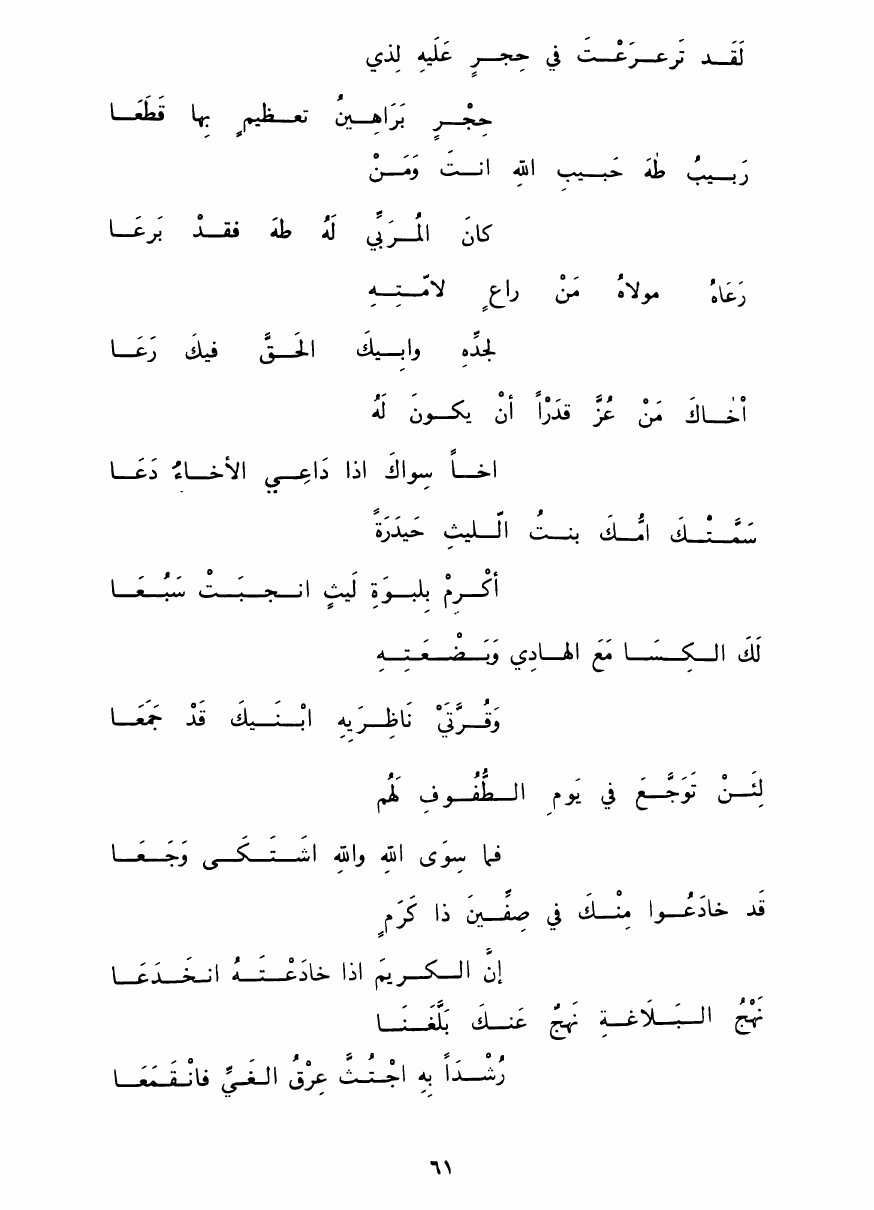 لَقَد تَرعرَعْتَ في حِجرٍ عَلَيهِ لِذي
حِجْرٍ بَرَاهِينُ تعظيمٍ بِها قَطَعَا
رَبيبُ طٰهَ حَبيبِ اللهِ انتَ وَمَنْ
كانَ المُرَبِّي لَهُ طهَ فقدْ بَرعَا
رَعَاهُ مولاهُ مَنْ راعٍ لامّتِهِ
لجدِّه وابيكَ الحَقَّ فيكَ رَعَا
أخاكَ مَنْ عُزَّ قدَرْاً أنْ يكونَ لَهُ
اخاً سِواكَ اذا دَاعِي الأخاءُ دَعَا
سَمَّتْكَ امُّكَ بنتُ الّليثِ حَيدَرَةً
أكْرِمْ بِلبوَةِ لَيثٍ انجبَتْ سَبُعَا
لَكَ الكِسَا مَعَ الهادِي وَبَضْعَتِهِ
وَقُرَّتَيْ نَاظِرَيهِ ابْنَيكَ قَدْ جَمَعَا
لئِنْ تَوَجَّعَ في يَومِ الطُّفُوفِ لَهُم
فما سِوَى اللهِ واللهِ اشتَكَى وَجَعَا
قَد خادَعُوا مِنْكَ في صِفِّينَ ذا كَرَمٍ
إنَّ الكريمَ اذا خادَعْتَهُ انخَدَعَا
نَهْجُ البَلَاغةِ نَهجٌ عَنكَ بَلَّغَنَا
رُشْدَاً بهِ اجْتُثَّ عِرْقُ الغَيِّ فانْقَمَعَا
٦١